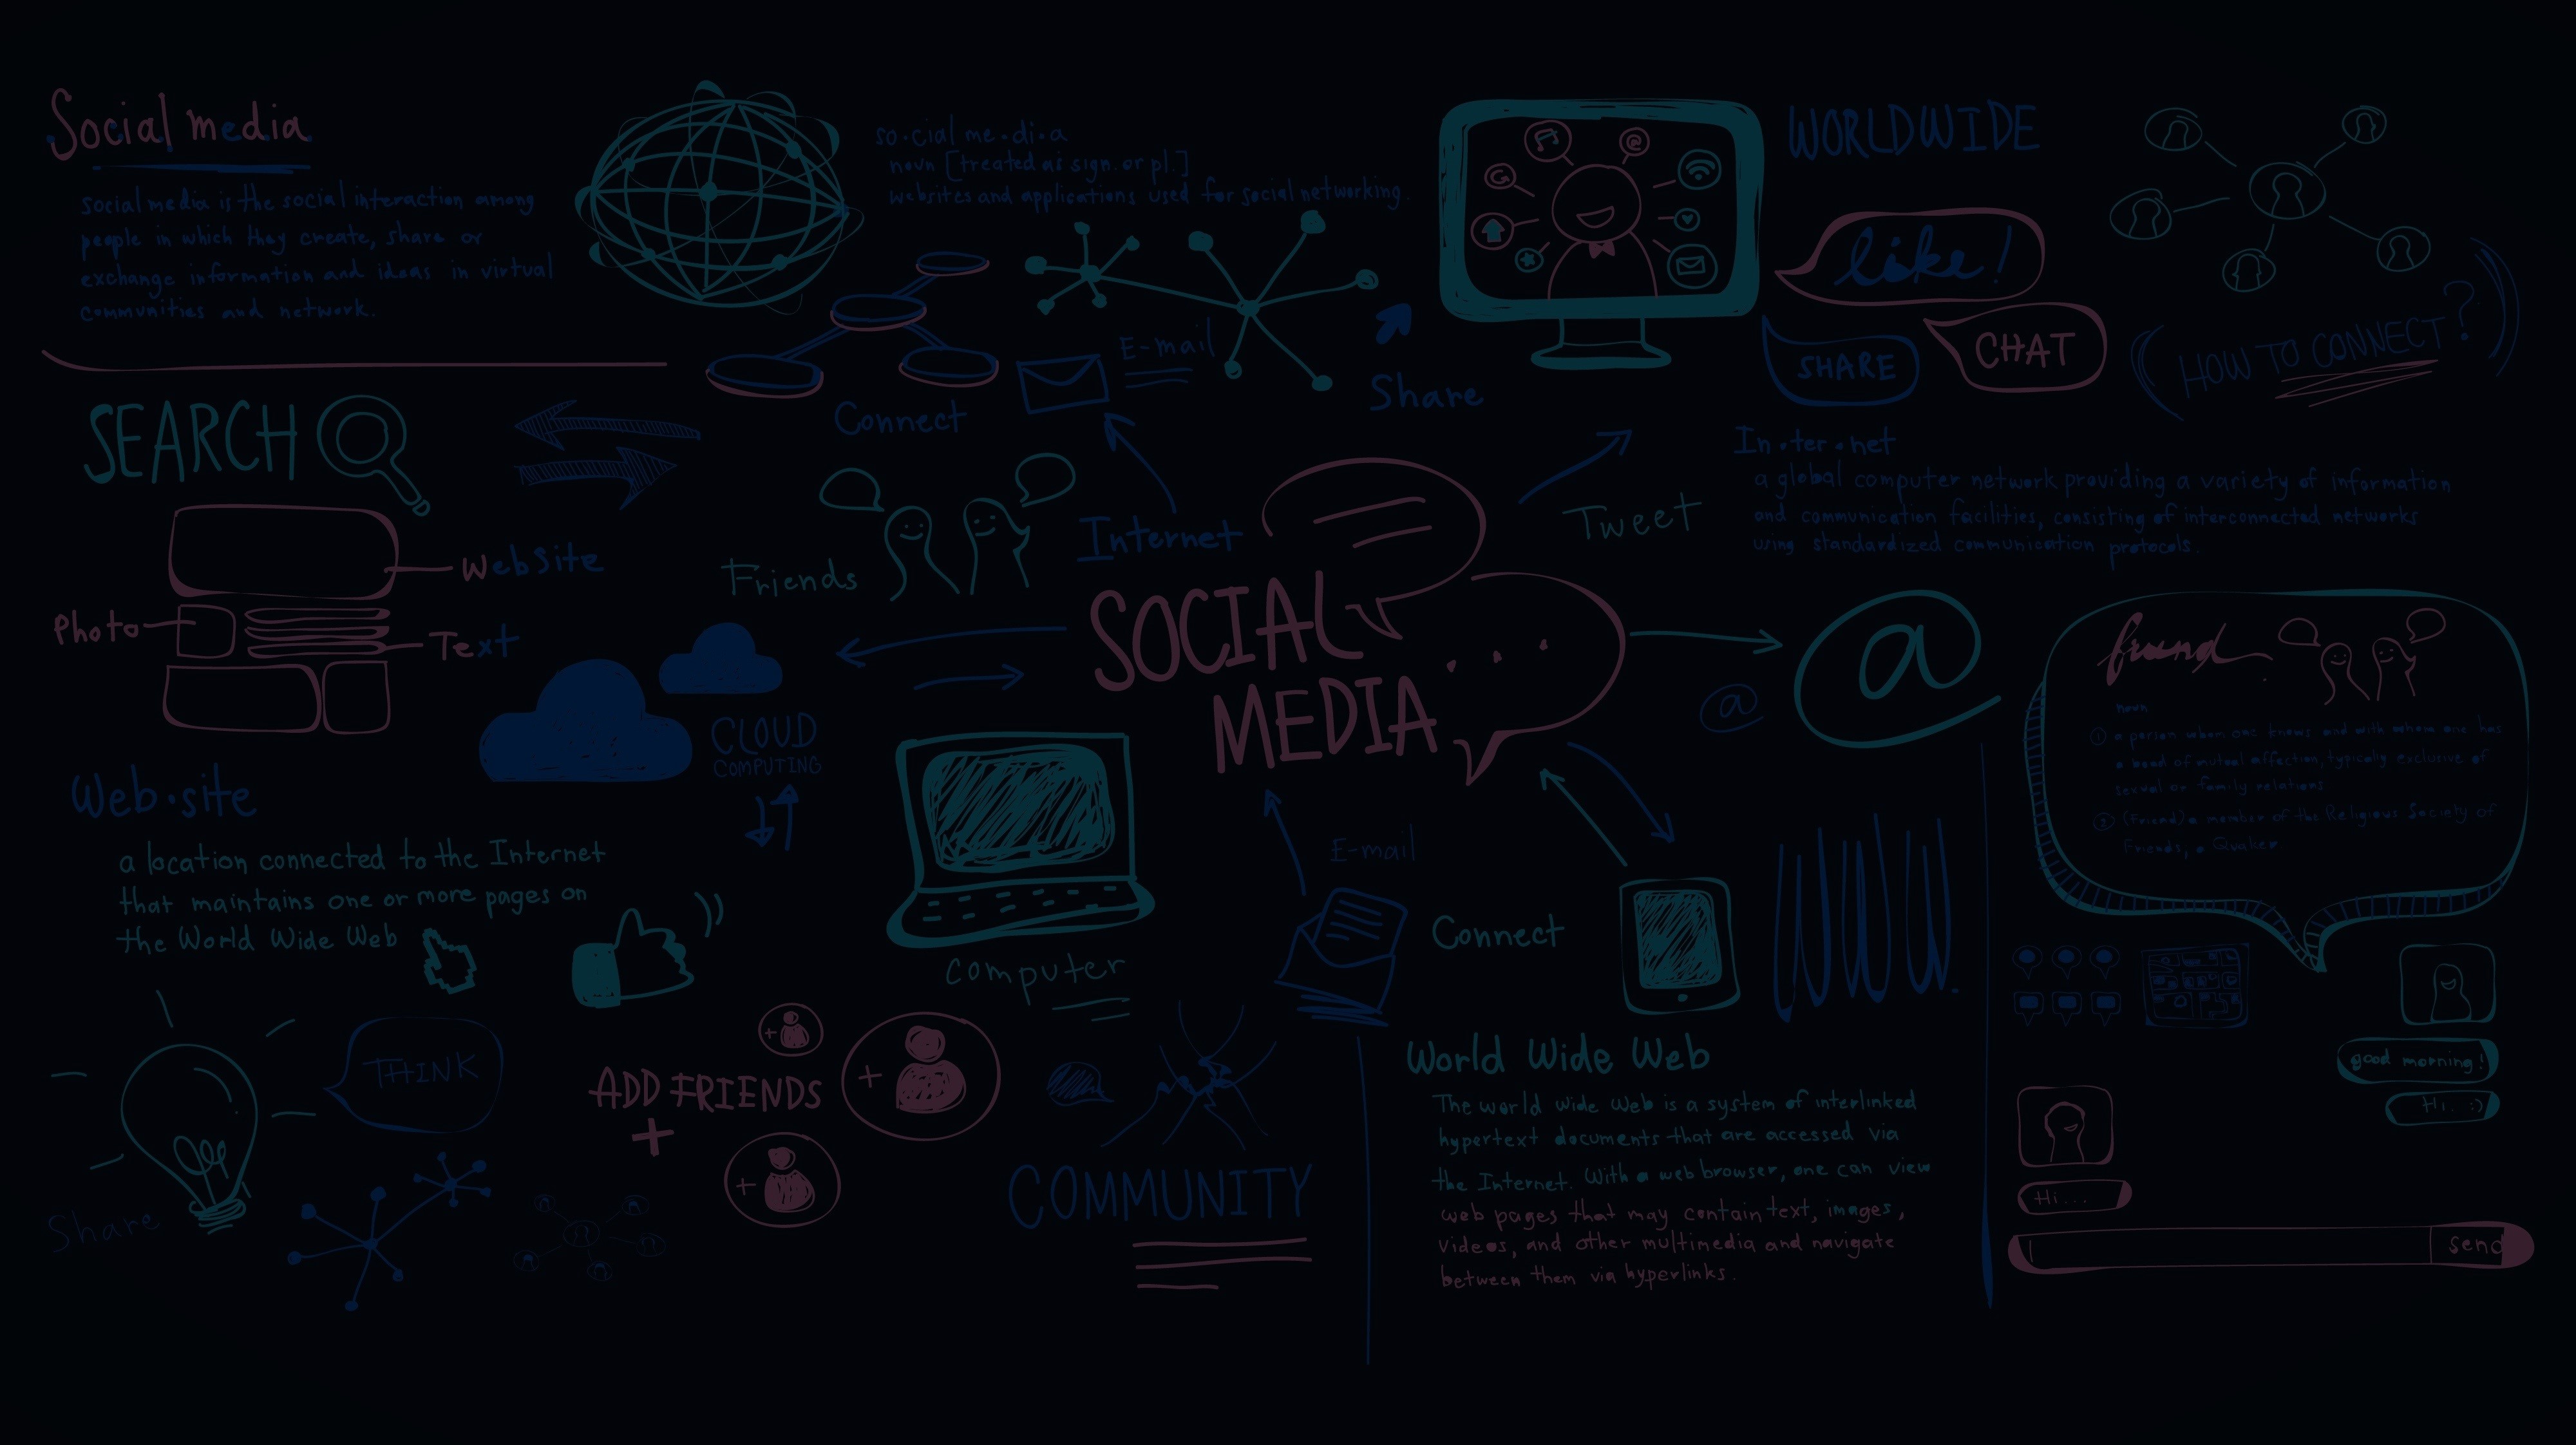 Social media
social media is the social interaction among
people in which they create, share or
exchange information and ideas in virtual
communities and network.
so•cial me•di•a
noun [treated as sign. or pl.]
websites and applications used for social networking.
WORLDWIDE
like!
SHARE
CHAT
HOW TO CONNECT?
E-mail
Share
Connect
SEARCH
Website
Photo
Text
Friends
Internet
Tweet
In•ter•net
a global computer network providing a variety of information
and communication facilities, consisting of interconnected networks
using standardized communication protocols.
SOCIAL
MEDIA
...
@
@
CLOUD
COMPUTING
friend
noun
① a person whom one knows and with whom one has
a bond of mutual affection, typically exclusive of
sexual or family relations
② (Friend) a member of the Religious Society of
Friends, a Quaker
Web•site
a location connected to the Internet
that maintains one or more pages on
the World Wide Web
Computer
E-mail
Connect
WWW.
THINK
Share
ADD FRIENDS
+
+
+
+
COMMUNITY
World Wide Web
The world wide Web is a system of interlinked
hypertext documents that are accessed via
the Internet. With a web browser, one can view
web pages that may contain text, images,
videos, and other multimedia and navigate
between them via hyperlinks.
good morning!
Hi. :)
Hi...
send